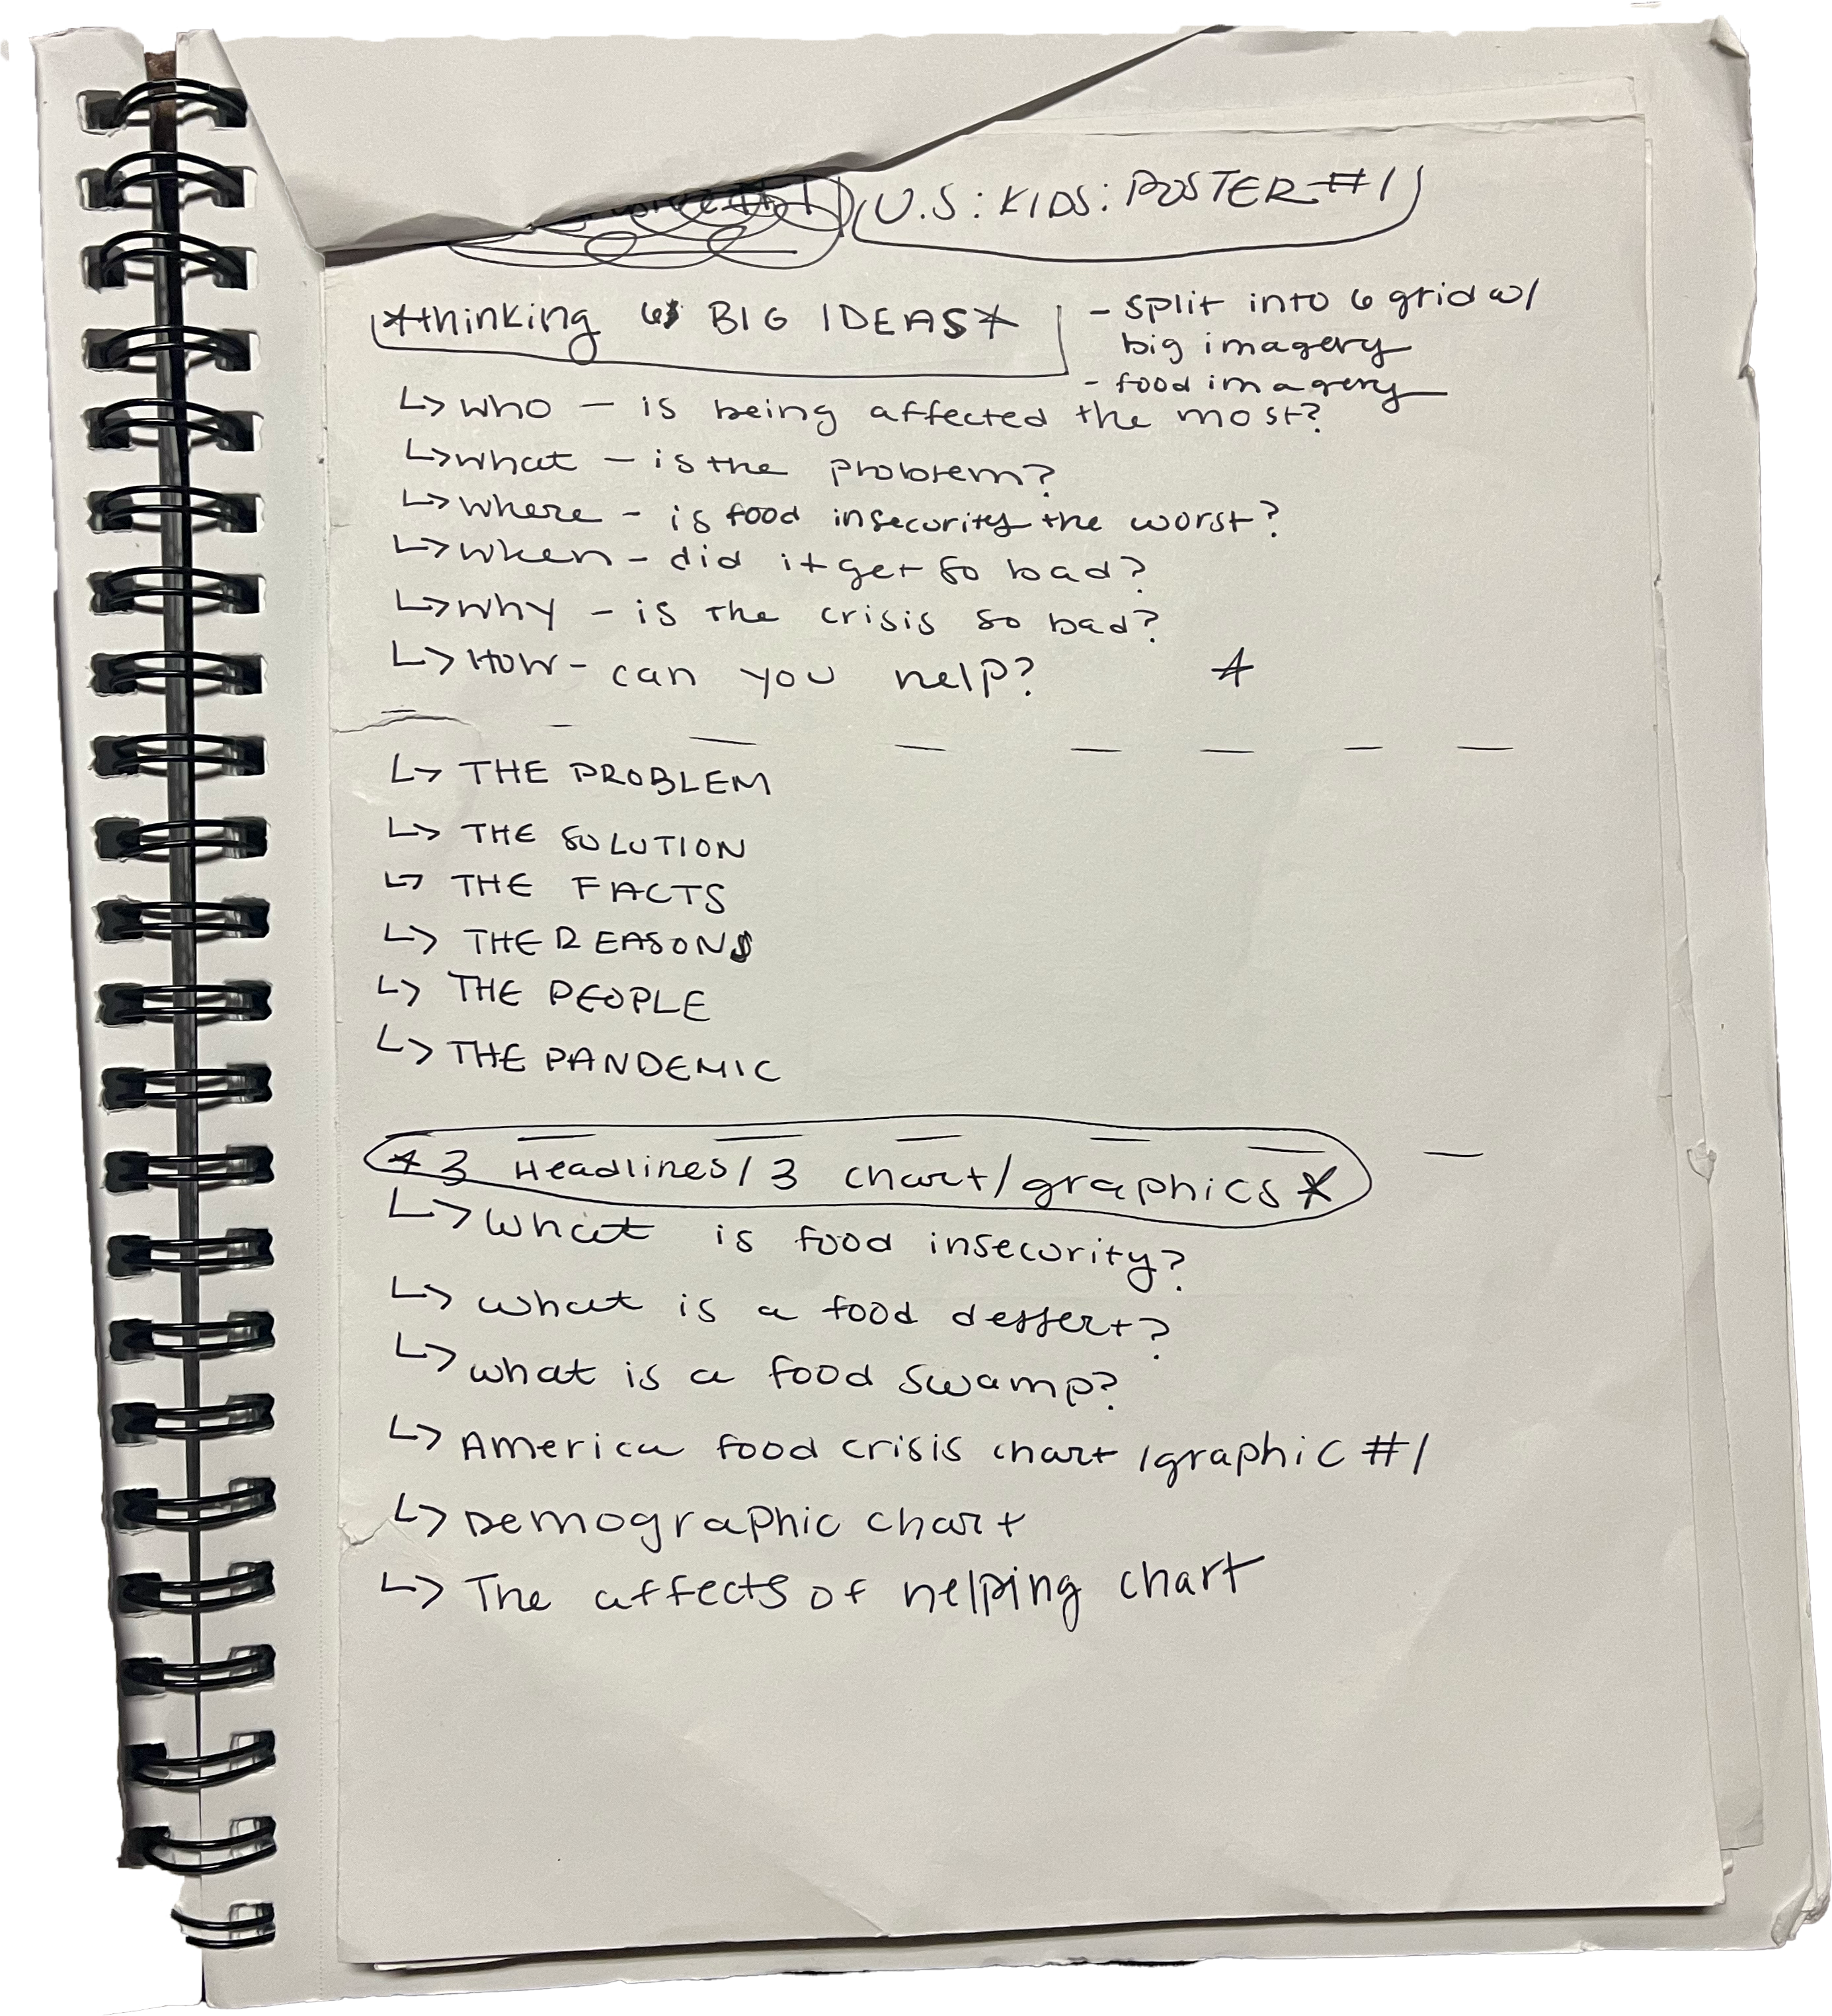 U.S: KIDS: POSTER #1
*thinking 6 BIG IDEAS*
- split into 6 grid w/
big imagery
- food imagery
↳ who - is being affected the most?
↳ what - is the problem?
↳ where - is food insecurity the worst?
↳ when - did it get so bad?
↳ why - is the crisis so bad?
↳ How - can you help? *
↳ THE PROBLEM
↳ THE SOLUTION
↳ THE FACTS
↳ THE REASONS
↳ THE PEOPLE
↳ THE PANDEMIC
* 3 Headlines/3 chart/graphics *
↳ what is food insecurity?
↳ what is a food dessert?
↳ what is a food swamp?
↳ America food crisis chart/graphic #1
↳ Demographic chart
↳ The affects of helping chart